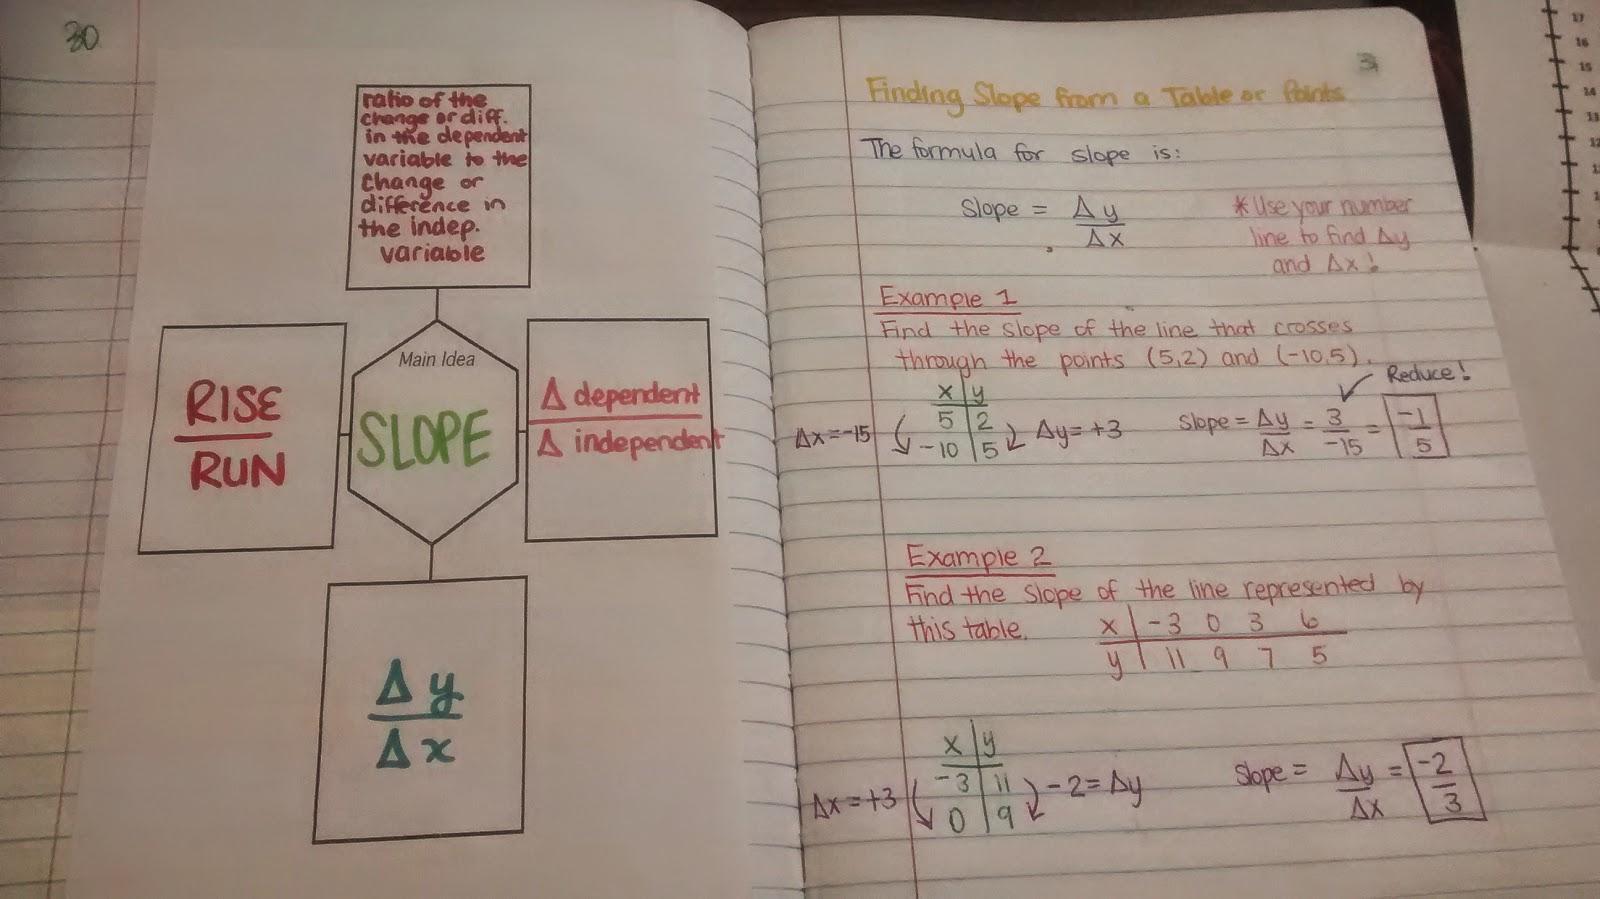 30
ratio of the
change or diff.
in the dependent
variable to the
change or
difference in
the indep.
variable
RISE
RUN
Main Idea
SLOPE
Δ dependent
Δ independent
Δy
Δx
31
Finding Slope from a Table or Points
The formula for slope is:
Slope = Δy
Δx
*Use your number
line to find Δy
and Δx!
Example 1
Find the slope of the line that crosses
through the points (5,2) and (-10,5).
Reduce!
x y
5 2
-10 5
Δx=-15
Δy=+3
Slope = Δy = 3 = -1
Δx -15 5
Example 2
Find the slope of the line represented by
this table.
x -3 0 3 6
y 11 9 7 5
x y
-3 11
0 9
Δx=+3
-2=Δy
Slope = Δy = -2
Δx 3
17
16
15
14